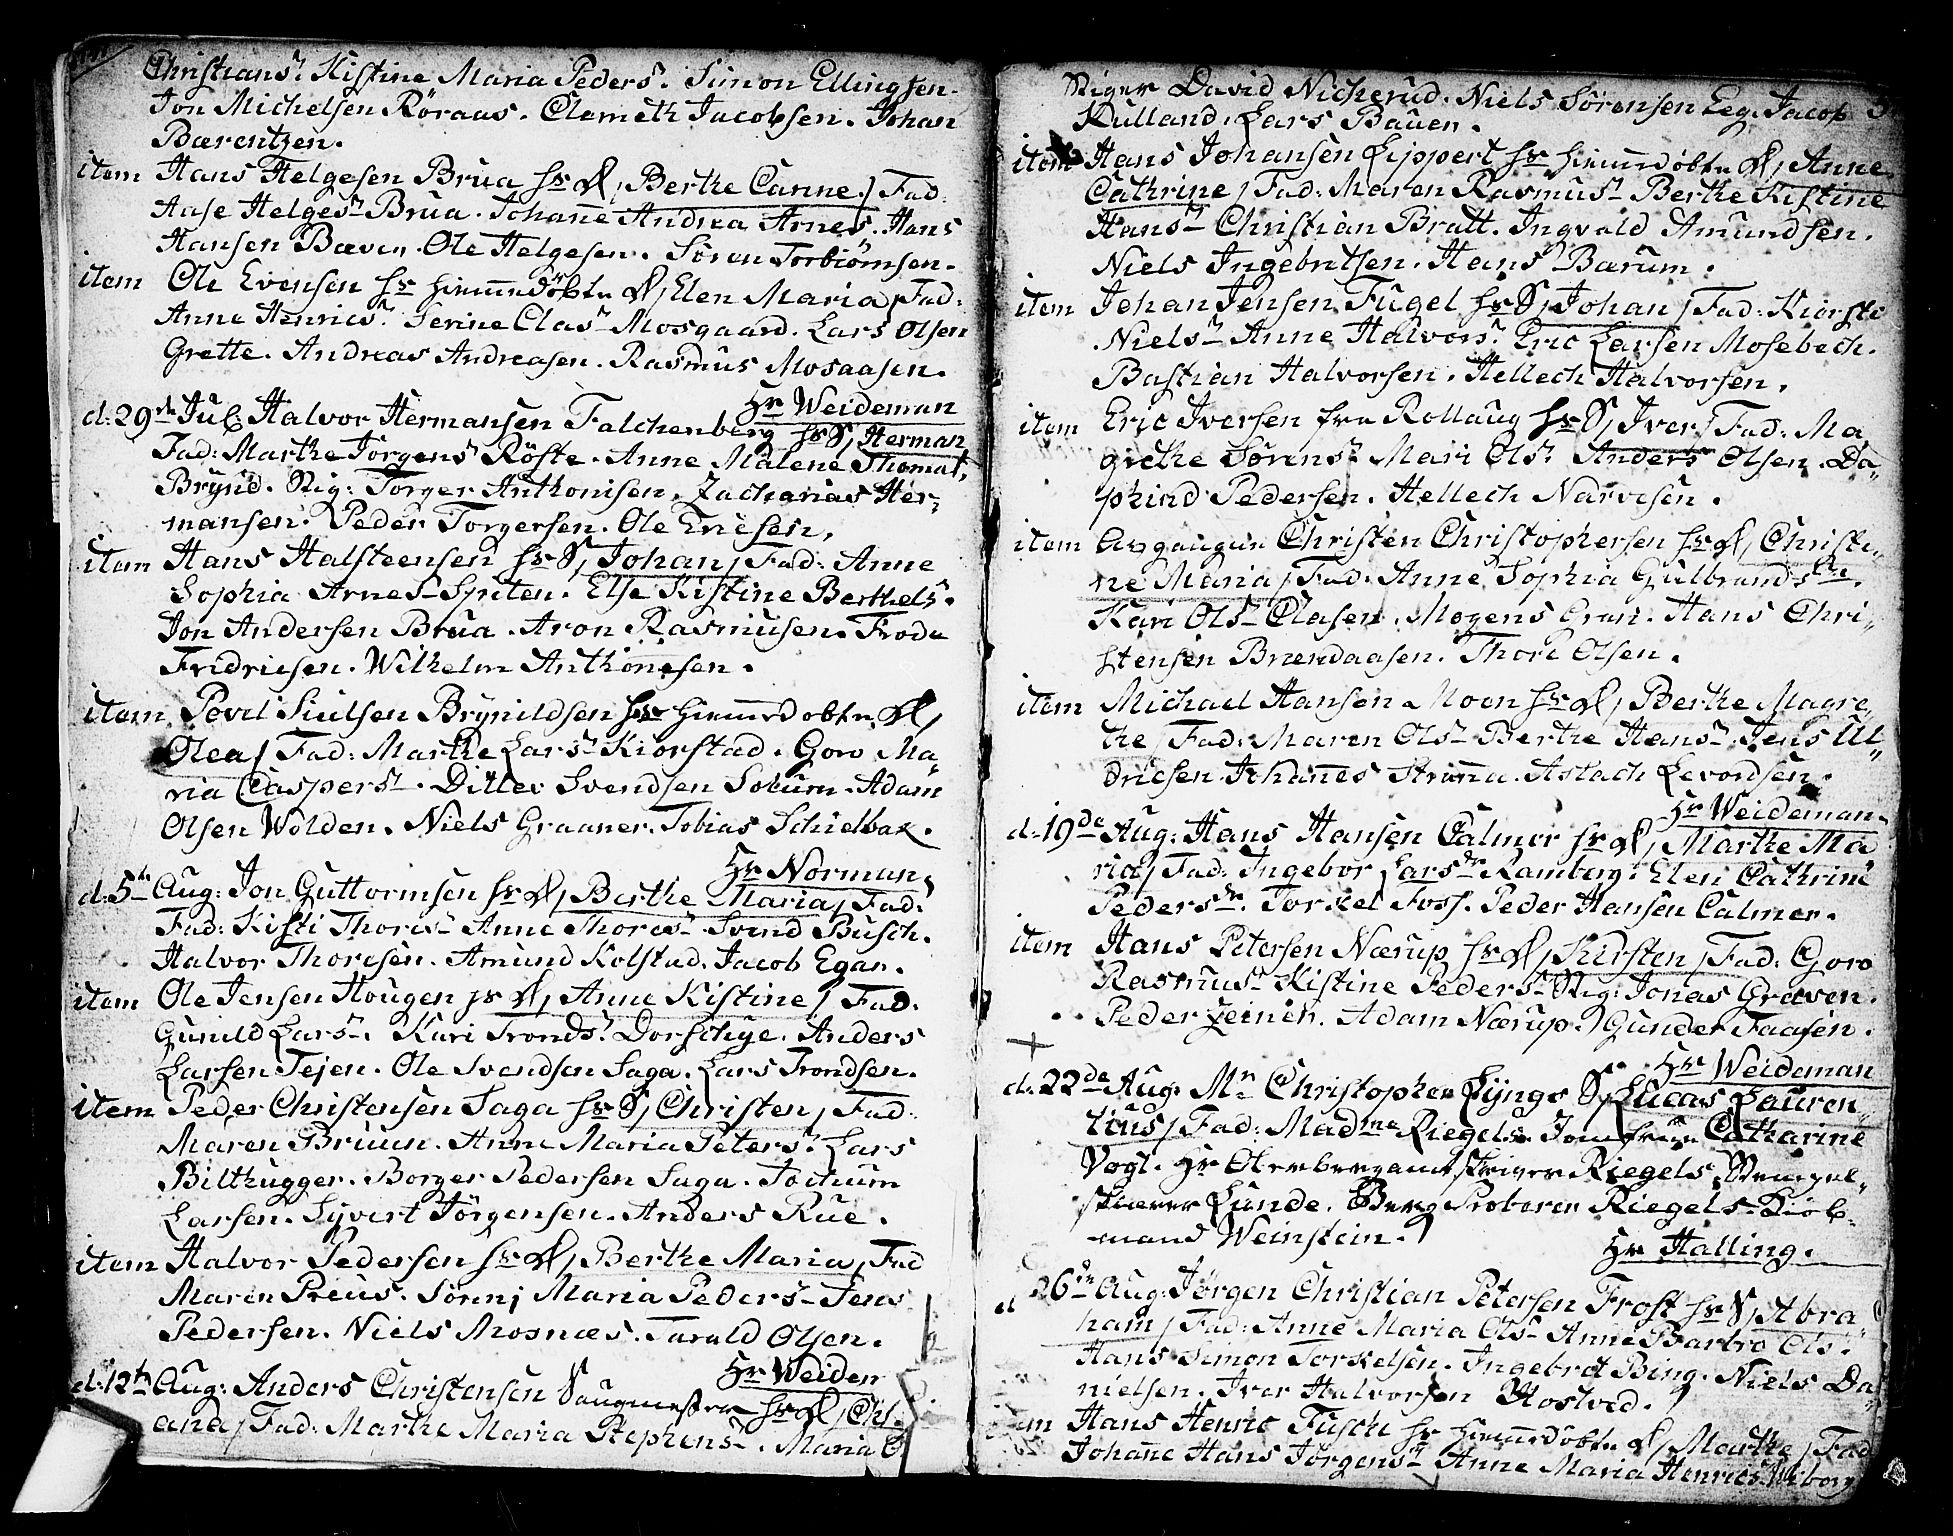 Christians: Kistine Maria Peders: Simon Ellingsen.
Jon Michelsen Röraas. Clemeth Jacobsen. Johan
Bærentzen.
item Hans Helgesen Brua hs D, Berthe Canne / Fad:
Aase Helges: Brua. Johane Andrea Arnes. Hans
Hansen Bæver. Ole Helgesen. Sören Torbiörnsen.
item Ole Evensen hs hiemmedöbte D, Elen Maria, Fad:
Anne Henrics: Serine Clas: Mosgaard. Lars Olsen
Grette. Andreas Andreasen. Rasmus Mosaasen.
Hr Weideman
d: 29de Jul: Halvor Hermansen Falchenberg hs S, Herman
Fad: Marthe Jörgens Röste. Anne Malene Thomas,
Brynd. Stig: Torger Anthonisen. Zacharias Her-
mansen. Peder Torgersen. Ole Ericsen,
item Hans Halsteensen hs S, Johan, Fad: Anne
Sophia Arnes: Spiten. Else Kistine Berthels.
Jon Andersen Brua. Aron Rasmusen. Frode
Fridricsen. Wilhelm Anthonesen.
item Povel Brynildsen hs hiemmedobte D,
Olea / Fad: Marthe Lars: Kiorstad. Goro Ma-
ria Caspers: Ditlev Svendsen Solum. Adam
Olsen Wolden. Niels Graaner. Tobias Schielbax.
Hr Norman
d: 5te Aug: Jon Guttormsen hs D, Berthe Maria, Fad:
Fad: Kisti Thores: Anne Thores: Svend Busch.
Halvor Thoresen. Amund Kolstad. Jacob Egar.
item Ole Jensen Hougen hs D, Anne Kistine / Fad:
Gunild Lars: Kari Tronds: Dorschye. Anders
Larsen Tejen. Ole Svendsen Saga. Lars Trondsen.
item Peder Christensen Saga hs S, Christen, Fad:
Maren Bruun. Anne Maria Peters: Lars
Bilthugger. Borger Pedersen Saga. Jochum
Larsen. Syvert Jörgensen. Anders Rue.
item Halvor Pedersen hs D, Berthe Maria, Fad
Maren Preus. Maria Peders: Jens
Pedersen. Niels Mosnæs. Tarald Olsen.
Hr Weidem
d: 12te Aug: Anders Christensen Saugmester hs D, Chri
ana / Fad: Marthe Maria Stephens: Maria
Stiger David Nicherud. Niels Sörensen Eeg. Jacob
Kulland. Lars Bauer.
item Hans Johansen Lippert hs hiemmedöbte D, Anne
Cathrine / Fad: Maren Rasmus: Berthe Kistine
Hans: Christian Bratt. Ingvald Amundsen.
Niels Ingebritsen. Hans Barum.
item Johan Jensen Fugel hs S, Johan / Fad: Kiersti
Niels: Anne Halvors: Eric Larsen Mosebech.
Bastian Halvorsen. Hellech Halvorsen.
item Eric Iversen fra Rollaug hs S, Iver / Fad: Ma
grethe Sörens: Mari Ols: Anders Olsen. Da-
phind Pedersen. Hellech Narvesen.
item Christen Christophersen hs D, Christi-
ne Maria / Fad: Anne Sophia Gulbrands
Kari Ols: Olasen. Mogens Gran. Hans Chri-
stensen Brendaasen. Thore Olsen.
item Michael Hansen Moen hs D, Berthe Magre-
the / Fad: Maren Ols: Berthe Hans: Jens Ul-
dricsen. Johannes Strøma. Aslach Levordsen.
Hr Weideman
d: 19de Aug: Hans Hansen Calmer hs D, Marthe Ma
ria / Fad: Ingebor Lars: Ramberg. Elen Cathrine
Peders: Torkel Foss. Peder Hansen Calmer.
item Hans Petersen Nærup hs D, Kirsten / Fad: Goro
Rasmus: Kistine Peders: Stig: Jonas Graven.
Peder Zeiner. Adam Nærup. Gunder Faasen.
Hr Weideman
d: 22de Aug: Mr Christopher Lynge S, Lucas Lauren-
tius / Fad: Madme Riegels. Jomfrue Catharine
Vogt. Hr Oberbergamtskriver Riegels. Stempel-
skierer Lunde. Berg Proberer Riegels. Kiöb-
mand Weinstein.
Hr Halling.
d 26de Aug: Jörgen Christian Petersen Frost hs S, Abra
ham / Fad: Anne Maria Ols: Anne Barbro Ols:
Hans Simon Torkelsen. Ingebret Bing. Niels Da-
nielsen. Iver Halvorsen Hostved.
em Hans Henric Fusche hs hiemmedöbte D, Marthe / Fad
Johane Hans Jörgens: Anne Maria Henrics: Wiborg